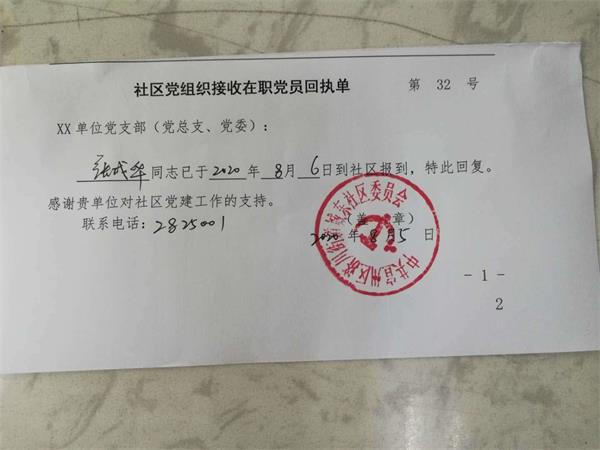 社区党组织接收在职党员回执单 第 32 号
XX 单位党支部（党总支、党委）:
张成华同志已于2020年8月6日到社区报到，特此回复。
感谢贵单位对社区党建工作的支持。
（盖 章）
联系电话:2825001
2020年8月5日
中共宣州区济川街道城东社区委员会
- 1 -
2